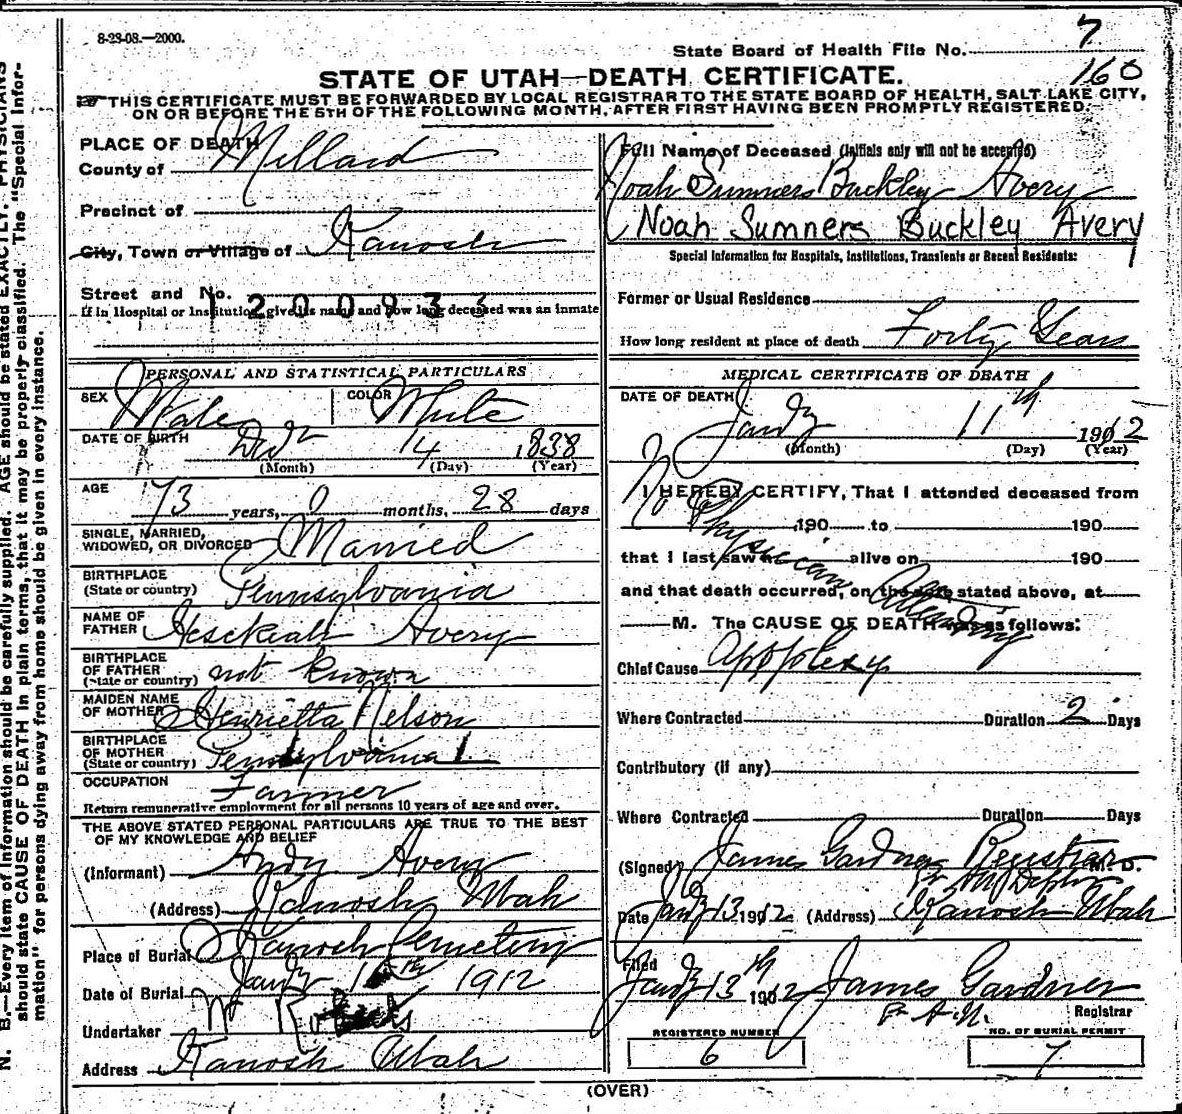 8-23-08.—2000.
State Board of Health File No. 7
160
STATE OF UTAH—DEATH CERTIFICATE.
THIS CERTIFICATE MUST BE FORWARDED BY LOCAL REGISTRAR TO THE STATE BOARD OF HEALTH, SALT LAKE CITY,
ON OR BEFORE THE 5TH OF THE FOLLOWING MONTH, AFTER FIRST HAVING BEEN PROMPTLY REGISTERED.
N. B.—Every item of information should be carefully supplied. AGE should be stated EXACTLY. PHYSICIANS
should state CAUSE OF DEATH in plain terms, that it may be properly classified. The "Special Infor-
mation" for persons dying away from home should be given in every instance.
PLACE OF DEATH
County of Millard
Precinct of
City, Town or Village of Kanosh
Street and No.
1200933
If in Hospital or Institution, give its name and how long deceased was an inmate
PERSONAL AND STATISTICAL PARTICULARS
SEX Male COLOR White
DATE OF BIRTH 14 1838
(Month) (Day) (Year)
AGE
73 years, 0 months, 28 days
SINGLE, MARRIED,
WIDOWED, OR DIVORCED Married
BIRTHPLACE
(State or country) Pennsylvania
NAME OF
FATHER Hesekiah Avery
BIRTHPLACE
OF FATHER
(State or country) not known
MAIDEN NAME
OF MOTHER Henrietta Nelson
BIRTHPLACE
OF MOTHER
(State or country) Pennsylvania
OCCUPATION Farmer
Return remunerative employment for all persons 10 years of age and over.
THE ABOVE STATED PERSONAL PARTICULARS ARE TRUE TO THE BEST
OF MY KNOWLEDGE AND BELIEF
(Informant) Andy Avery
(Address) Kanosh Utah
Place of Burial Kanosh Cemetery
Date of Burial 1912
Undertaker
Address Kanosh Utah
Full Name of Deceased (Initials only will not be accepted)
Noah Sumners Buckley Avery
Noah Sumners Buckley Avery
Special Information for Hospitals, Institutions, Transients or Recent Residents:
Former or Usual Residence
How long resident at place of death Forty Years
MEDICAL CERTIFICATE OF DEATH
DATE OF DEATH
Jany 11th 1912
(Month) (Day) (Year)
I HEREBY CERTIFY, That I attended deceased from
190 to 190
that I last saw h alive on 190
and that death occurred, on the date stated above, at
M. The CAUSE OF DEATH was as follows:
No Physician Attending
Chief Cause Appoplexy
Where Contracted Duration 2 Days
Contributory (if any)
Where Contracted Duration Days
(Signed) James Gardner Registrar M. D.
Date Jany 13 1912 (Address) Kanosh Utah
Filed
Jany 13th 1912 James Gardner
Registrar
REGISTERED NUMBER
6
NO. OF BURIAL PERMIT
7
(OVER)